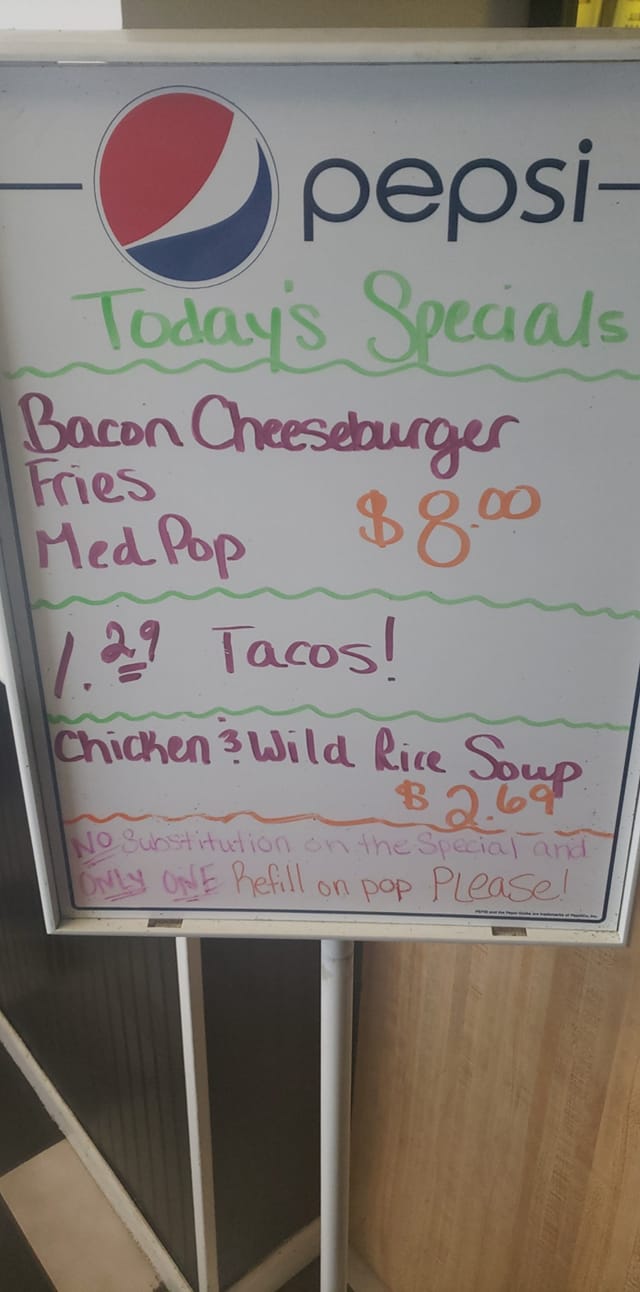 pepsi
Today's Specials
Bacon Cheeseburger
Fries
Med Pop $8.00
1.29 Tacos!
Chicken & Wild Rice Soup
$2.69
NO Substitution on the Special and
ONLY ONE Refill on pop PLease!
PEPSI and the Pepsi Globe are trademarks of PepsiCo, Inc.